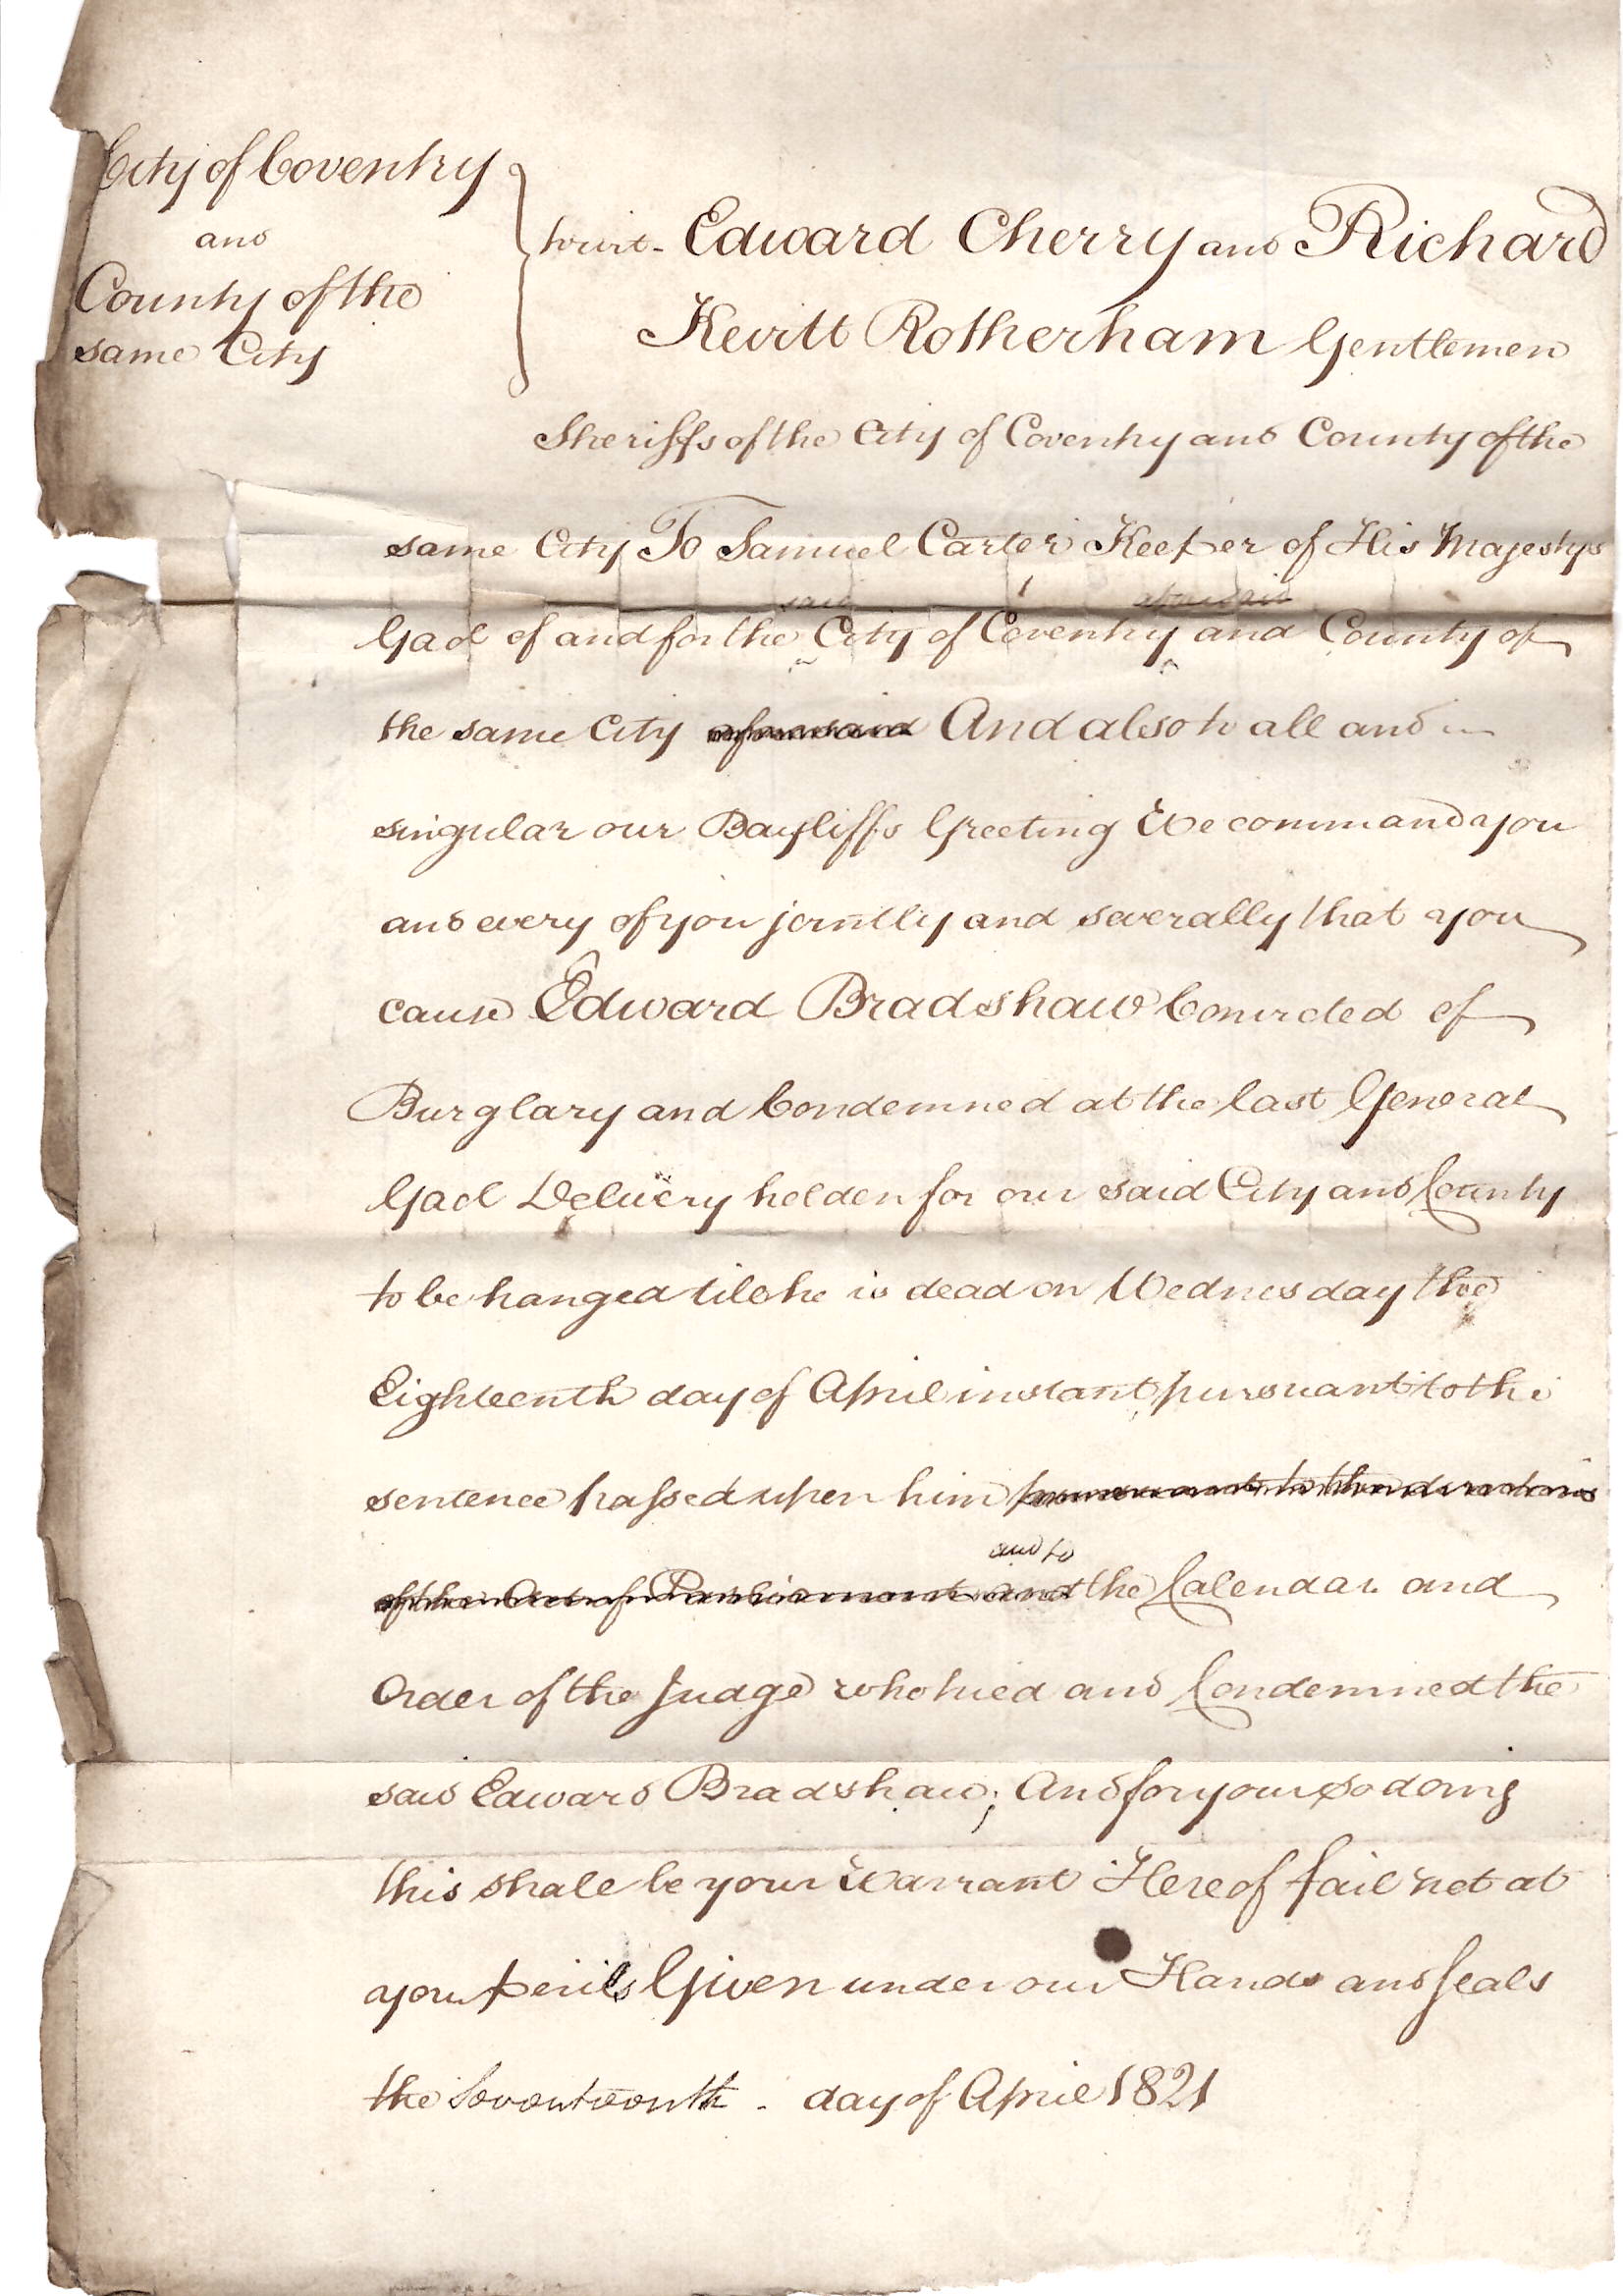 City of Coventry
and
County of the
same City
towit - Edward Cherry and Richard
Kevitt Rotherham Gentlemen
Sheriffs of the City of Coventry and County of the
same City To Samuel Carter Keeper of His Majestys
said aforesaid
Gaol of and for the City of Coventry and County of
the same City aforesaid And also to all and
singular our Bayliffs Greeting We command you
and every of you jointly and severally that you
cause Edward Bradshaw Convicted of
Burglary and Condemned at the last General
Gaol Delivery holden for our said City and County
to be hanged till he is dead on Wednesday the
Eighteenth day of April instant pursuant to the
sentence passed upon him pursuant to the directions
and to
of the Act of Parliament and the Calendar and
Order of the Judge who tried and Condemned the
said Edward Bradshaw; And for your so doing
this shall be your Warrant Hereof fail not at
your perils Given under our Hands and Seals
the Seventeenth - day of April 1821